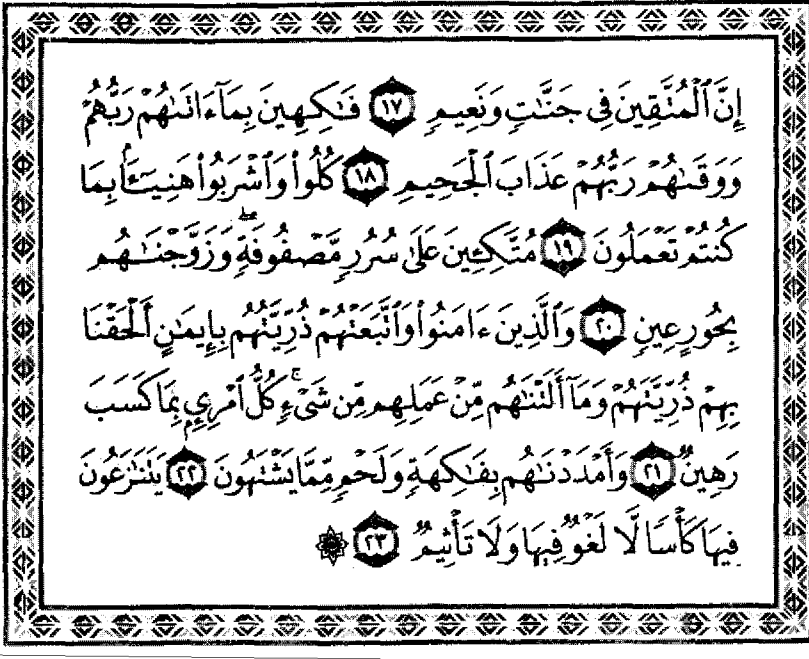 إِنَّ ٱلْمُتَّقِينَ فِى جَنَّٰتٍ وَنَعِيمٍ ١٧ فَٰكِهِينَ بِمَآ ءَاتَىٰهُمْ رَبُّهُمْ
وَوَقَىٰهُمْ رَبُّهُمْ عَذَابَ ٱلْجَحِيمِ ١٨ كُلُوا۟ وَٱشْرَبُوا۟ هَنِيٓـَٔۢا بِمَا
كُنتُمْ تَعْمَلُونَ ١٩ مُتَّكِـِٔينَ عَلَىٰ سُرُرٍ مَّصْفُوفَةٍ ۖ وَزَوَّجْنَٰهُم
بِحُورٍ عِينٍ ٢٠ وَٱلَّذِينَ ءَامَنُوا۟ وَٱتَّبَعَتْهُمْ ذُرِّيَّتُهُم بِإِيمَٰنٍ أَلْحَقْنَا
بِهِمْ ذُرِّيَّتَهُمْ وَمَآ أَلَتْنَٰهُم مِّنْ عَمَلِهِم مِّن شَىْءٍ ۚ كُلُّ ٱمْرِئٍۭ بِمَا كَسَبَ
رَهِينٌ ٢١ وَأَمْدَدْنَٰهُم بِفَٰكِهَةٍ وَلَحْمٍ مِّمَّا يَشْتَهُونَ ٢٢ يَتَنَٰزَعُونَ
فِيهَا كَأْسًا لَّا لَغْوٌ فِيهَا وَلَا تَأْثِيمٌ ٢٣ ۞